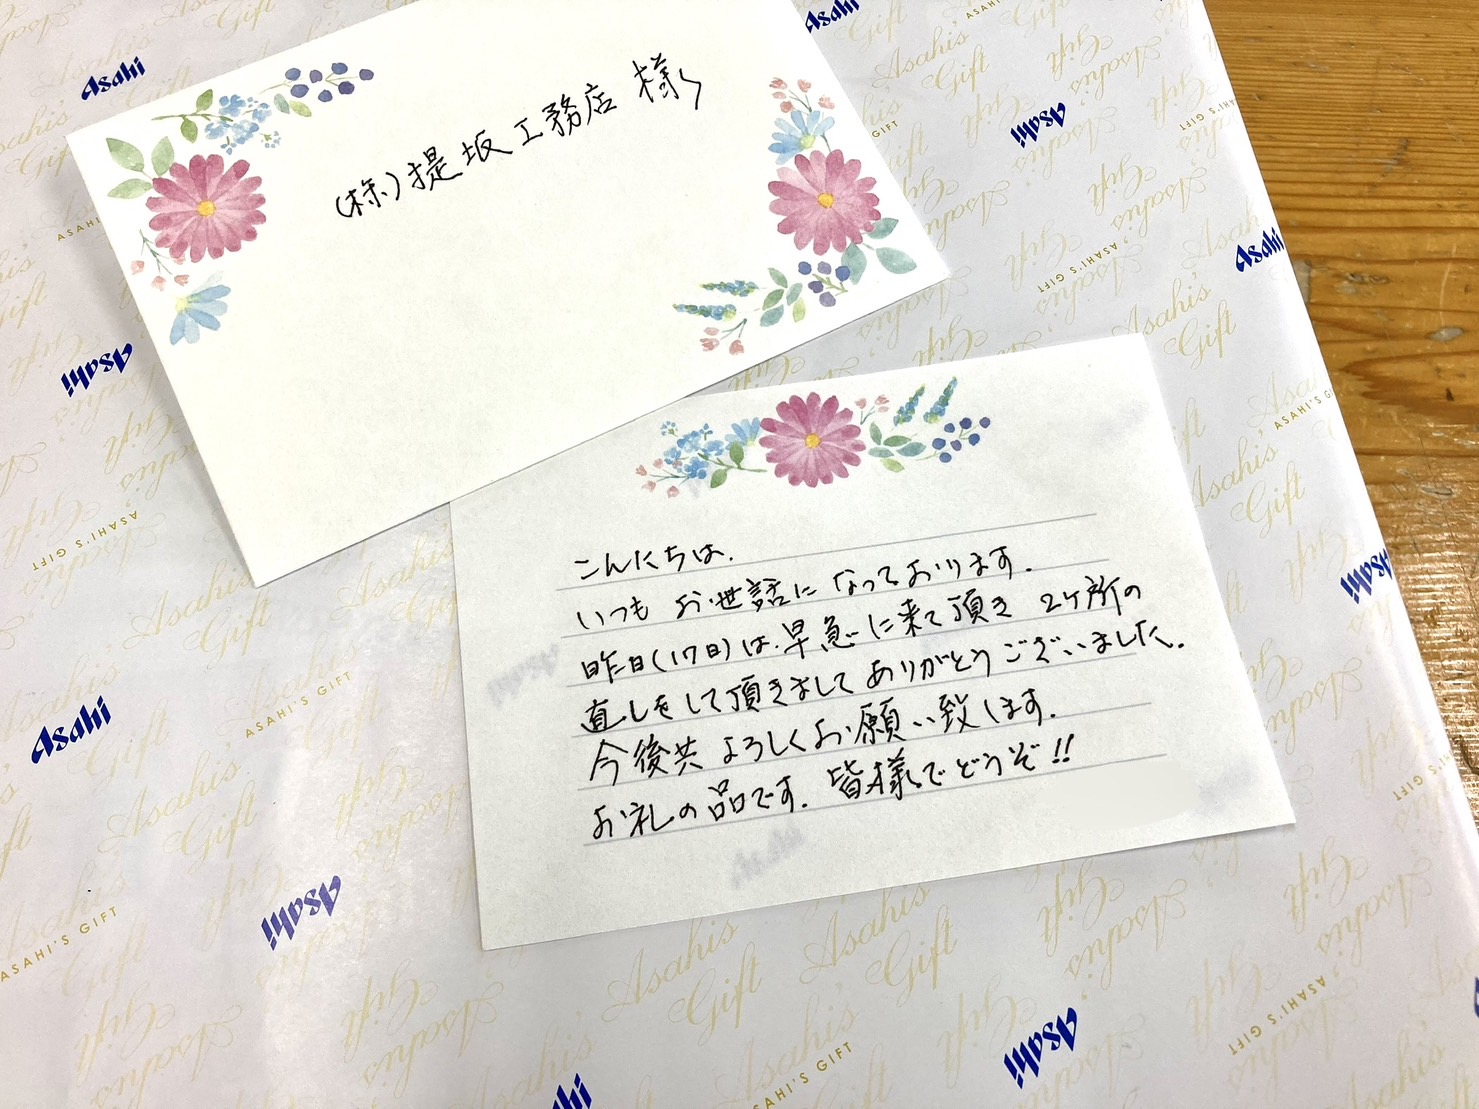 (株)提坂工務店 様
こんにちは.
いつも お世話に なっております.
昨日(17日)は.早急に来て頂き 2ヶ所の
直しをして頂きまして ありがとうございました.
今後共 よろしくお願い致します.
お礼の品です. 皆様でどうぞ!!
Asahi
Asahi
Asahi
Asahi
Asahi
Asahi
Asahi
Asahi
Asahi
Asahi
Asahi's Gift
ASAHI'S GIFT